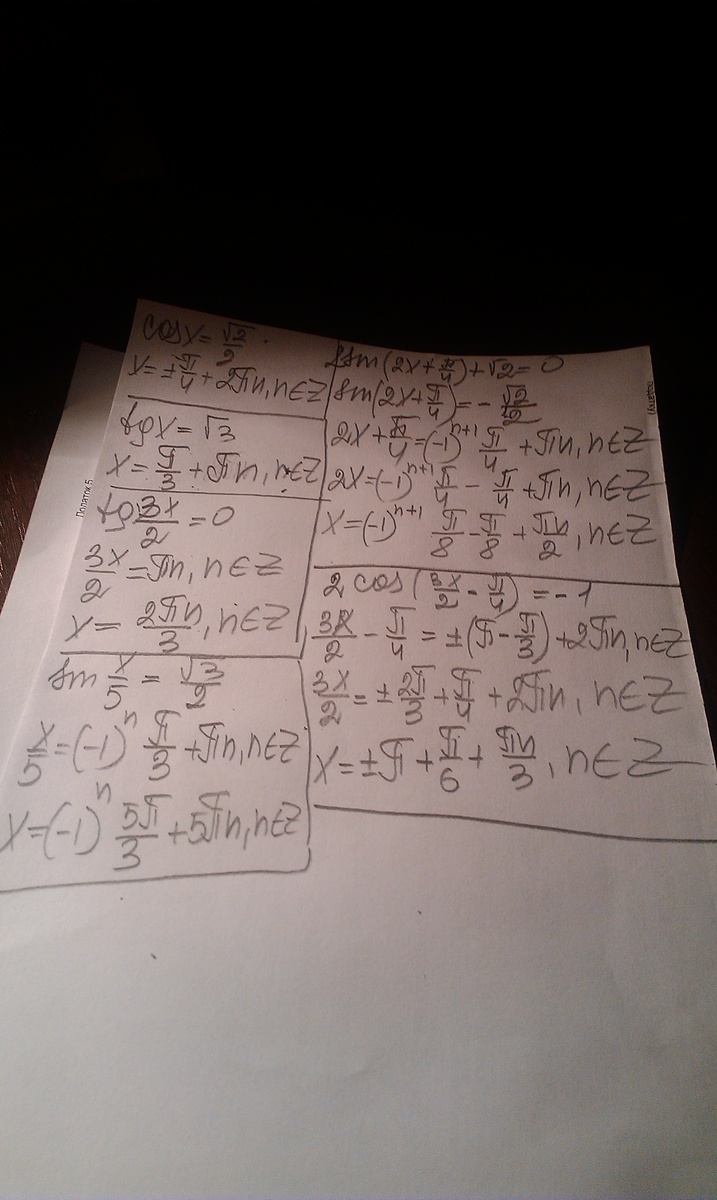 cos x = √2/2
x = ±π/4 + 2πn, n∈Z
tg x = √3
x = π/3 + πn, n∈Z
tg 3x/2 = 0
3x/2 = πn, n∈Z
x = 2πn/3, n∈Z
sin x/5 = √3/2
x/5 = (-1)^n π/3 + πn, n∈Z
x = (-1)^n 5π/3 + 5πn, n∈Z
2sin(2x + π/4) + √2 = 0
sin(2x + π/4) = -√2/2
2x + π/4 = (-1)^(n+1) π/4 + πn, n∈Z
2x = (-1)^(n+1) π/4 - π/4 + πn, n∈Z
x = (-1)^(n+1) π/8 - π/8 + πn/2, n∈Z
2 cos(3x/2 - π/4) = -1
3x/2 - π/4 = ±(π - π/3) + 2πn, n∈Z
3x/2 = ±2π/3 + π/4 + 2πn, n∈Z
x = ±π + π/6 + πn/3, n∈Z
Додаток 5